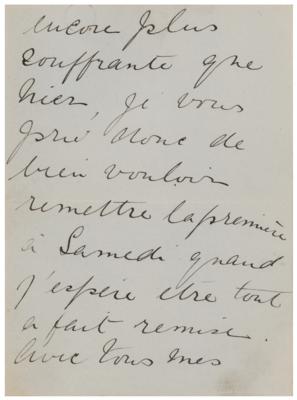 encore plus
souffrante que
hier, je vous
prie donc de
bien vouloir
remettre la première
à Samedi quand
j'espère être tout
a fait remise.
Avec tous mes